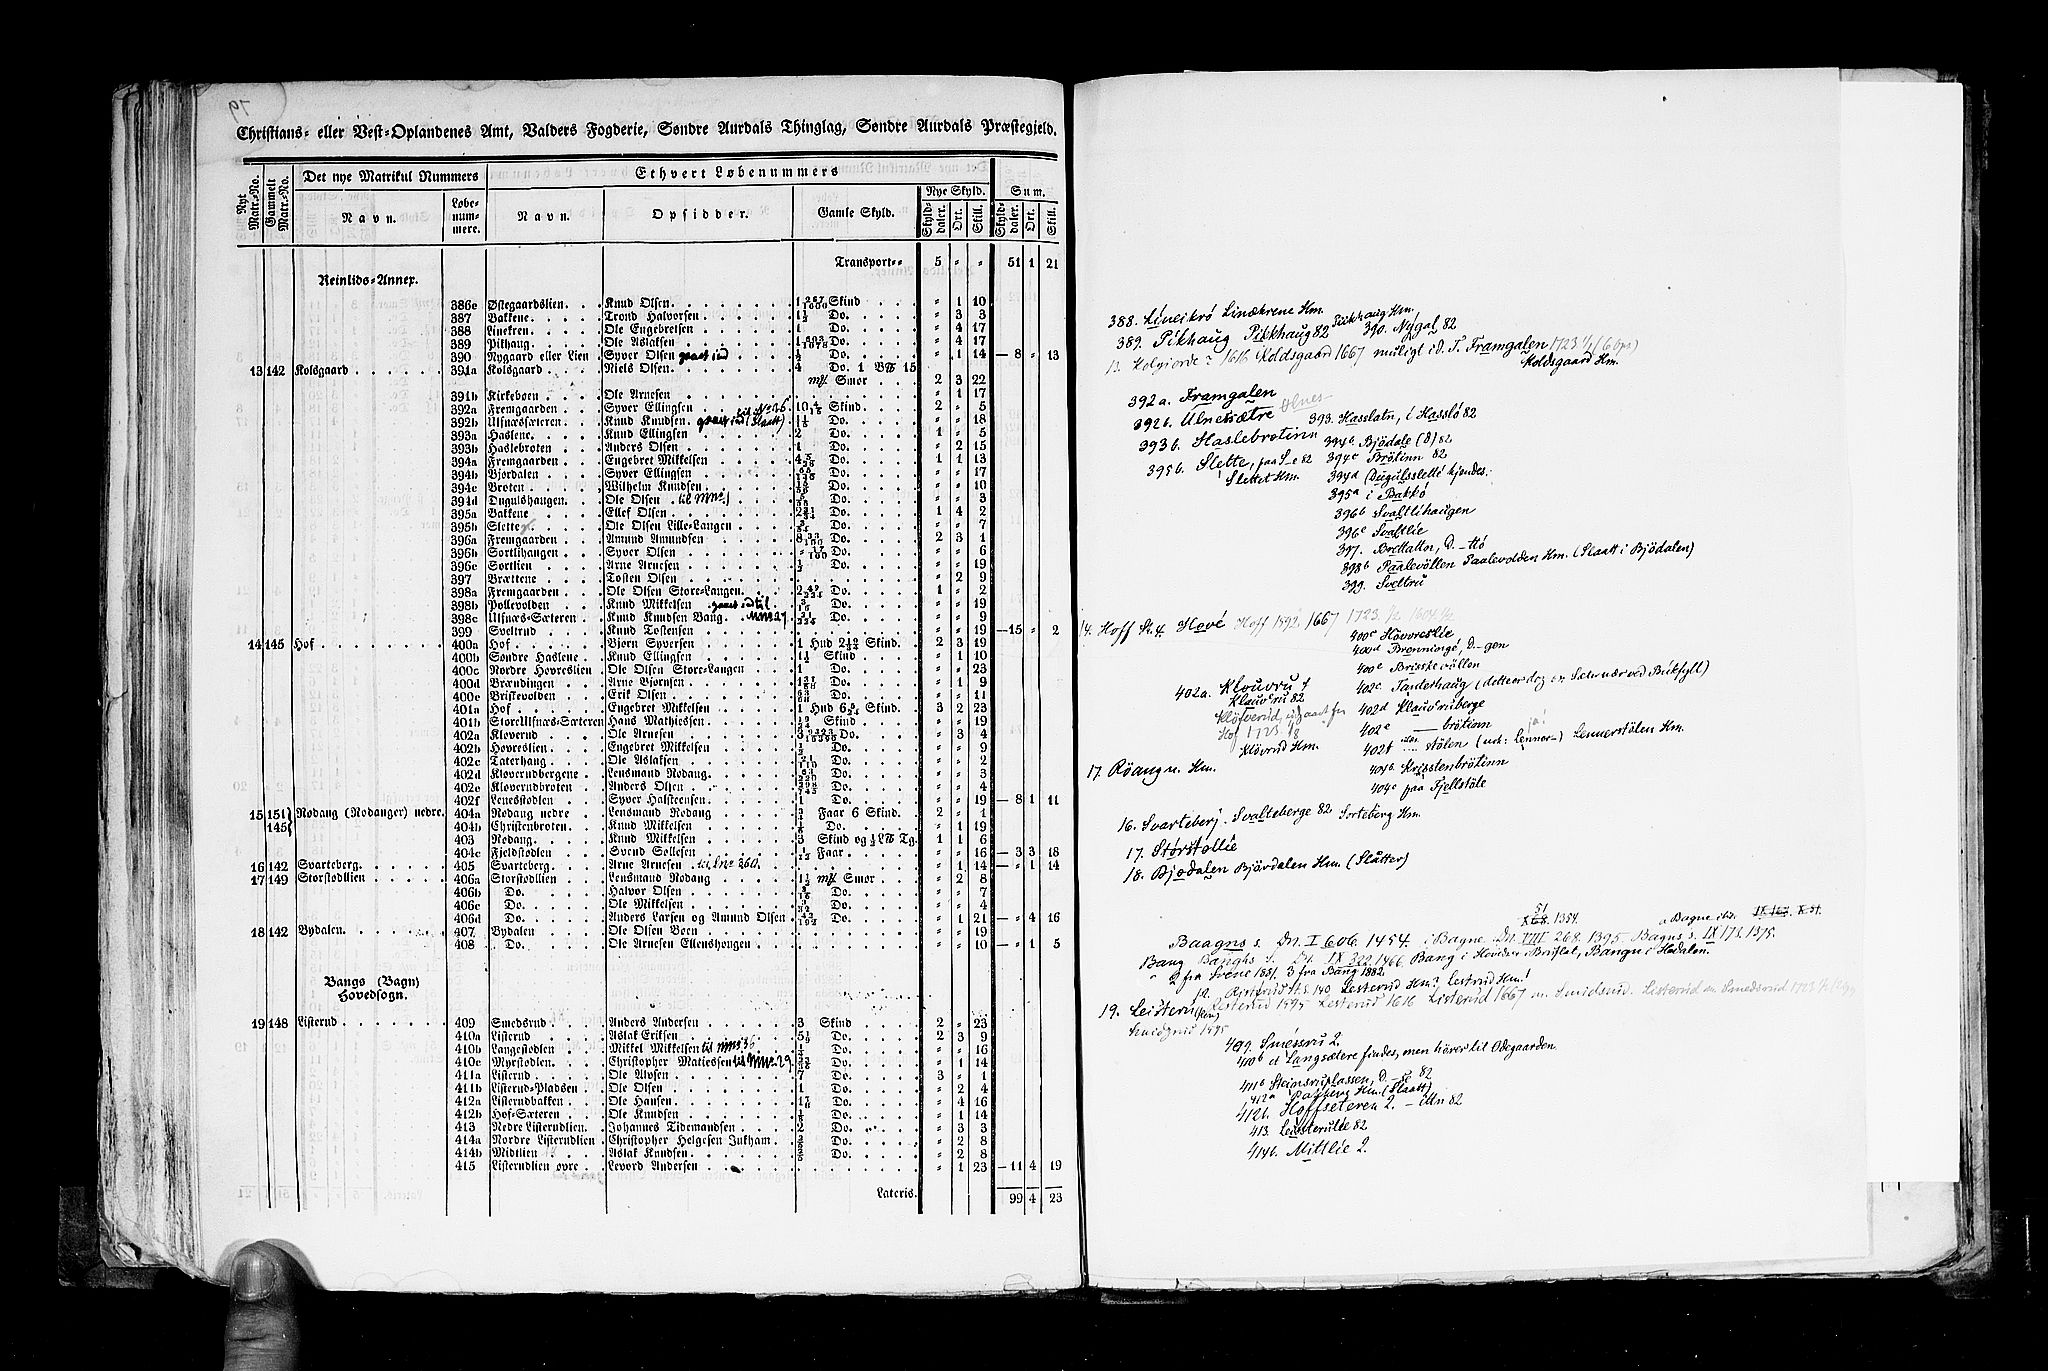 79
Christians- eller Vest-Oplandenes Amt, Valders Fogderie, Søndre Aurdals Thinglag, Søndre Aurdals Præstegjeld.
Nyt Matr.-No. Gammelt Matr.-No. Det nye Matrikul Nummers Ethvert Løbenummers
Nye Skyld. Sum.
Navn. Løbe-num-mere. Navn. Opsidder. Gamle Skyld. Skyld-daler. Ort. Skill. Skyld-daler. Ort. Skill.
Transport-- 5 - - 51 1 21
Reinlids-Annex.
386e Østegaardslien. Knud Olsen. Skind - 1 10
387 Bakkene. Trond Halvorsen 1½ Do. - 3 3
388 Linekren. Ole Engebretsen 1 Do. - 4 17
389 Pikhaug. Ole Aslaksen Do. - 4 17
390 Nygaard eller Lien Syver Olsen ½ Do. - 1 14 - 8 - 13
13 142 Kolsgaard 391a Kolsgaard Niels Olsen. 4 Do. 1 15
Smør 2 3 22
391b Kirkebøen Ole Arnesen - 1 17
392a Fremgaarden Syver Ellingsen til No 26 Skind. 2 - 5
392b Ulfnæssæteren. Knud Knudsen. Do. - - 18
393a Haslene. Knud Ellingsen 2 Do. 1 - 5
393b Haslebroten Anders Olsen Do. - 2 15
394a Fremgaarden Engebret Mikkelsen Do. 1 1 13
394b Bjordalen Syver Ellingsen Do. - - 17
394c Broten Wilhelm Knudsen Do. - - 10
394d Dugulshaugen. Ole Olsen Do. - - 3
395a Bakkene Ellef Olsen Do. 1 4 2
395b Slette Ole Olsen Lille-Langen Do. - - 7
396a Fremgaarden Amund Amundsen Do. 2 3 1
396b Sortlihaugen Syver Olsen Do. - - 6
396c Sortlien Arne Arnesen ½ Do. - - 19
397 Brættene Tosten Olsen - 2 9
398a Fremgaarden Ole Olsen Store-Langen. Do. 1 - 2
398b Pollevolden Knud Mikkelsen Do. - - 19
398c Ulfnæs-Sæteren Knud Knudsen Bang. Do. - - 9
399 Sveltrud Knud Tostensen - - 19 - 15 - 2
14 145 Hof 400a Hof Bjørn Syversen 1 Hud Skind. 2 3 19
400b Søndre Haslene Knud Ellingsen 1½ Skind - 1 10
400c Nordre Hovreslien Ole Olsen Store-Langen 1 Do. - - 23
400d Brændingen Arne Bjørnsen Do. - 1 9
400e Bristevolden Erik Olsen Do. - - 11
401a Hof Engebret Mikkelsen 1 Hud Skind. 3 2 23
401b Store Ulfnæs-Sæteren Hans Mathiessen Skind - - 19
402a Kloverud Ole Arnesen Do. - 3 4
402b Hovreslien. Engebret Mikkelsen Do. - - 9
402c Taterhaug Ole Aslaksen Do. - - 2
402d Kloverudbergene Lensmand Rodang. Do. - - 3
402e Kloverudbroten Anders Olsen Do. - - 4
402f Lenesstødlen Syver Halsteensen 1 Do. - - 19 - 8 1 11
15 151 145 Rodang (Rodanger) nedre. 404a Rodang nedre Lensmand Rodang Faar 6 Skind. 2 - 1
404b Christenbroten Knud Mikkelsen Do. - 1 19
403 Rodang. Knud Mikkelsen 3 Skind og Tg. 1 1 6
404c Fjeldstødlen Svend Sollesen Faar - - 16 - 3 3 18
16 142 Svarteberg. 405 Svarteberg. Arne Arnesen - 1 14 - - 1 14
17 149 Storstødllien 406a Storstødllien Lensmand Rodang Smør - 2 8
406b Do. Halvor Olsen Do. - - 7
406c Do. Ole Mikkelsen Do. - - 4
406d Do. Anders Larsen og Amund Olsen Do. - 1 21 - - 4 16
18 142 Bydalen. 407 Bydalen Ole Olsen Bøen - - 19
408 Do. Ole Arnesen Ellenshougen - - 10 - - 1 5
Bangs (Bagn)
Hovedsogn.
19 148 Listerud 409 Smedsrud Anders Andersen 3 Skind 2 - 23
410a Listerud Aslak Eriksen Do. 2 3 9
410b Langestødlen Mikkel Mikkelsen Do. - - 16
410c Myrstødlen. Christopher Matiessen Do. - 1 14
411a Listerud Ole Alvsen 7 Do. 3 - 1
411b Listerud-Pladsen Ole Olsen 1 Do. - 2 4
412a Listerudbakken Ole Hansen Do. - 4 16
412b Hof-Sæteren Ole Knudsen Do. - 1 14
413 Nedre Listerudlien. Johannes Tidemandsen Do. - 3 3
414a Nordre Listerudlien Christopher Helgesen Jukham. Do. - 2 8
414b Midtlien Aslak Knudsen Do. - 2 8
415 Listerudlien øvre Levord Andersen - 1 23 - 11 4 19
Lateris. 99 4 23
388. Lineikrö Linækrene Hm.
389. Pikhaug Pikkhaug 82 Pikkhaug Hm. 390. Nygal 82
13. 1616 Koldsgaard 1667 muligt i D. T. Framgalen 1723
Koldsgaard Hm.
392a. Framgalen
392b. Ulnessætre Ulnes
393. Haslatn, i Hasslö 82
393b. Haslebrotinn 394b Bjödale (d) 82
394c Brötinn 82
395b. Slette, paa S-e 82
Slettet Hm. 394d Dugulsslette kjendes.
395a i Bakkö
396b Svaltlihaugen
396c Svaltlie
397. Brettattn, D. -ttö
398b Paalevöllen Paalevolden Hm. (Slaatt i Bjödalen)
399. Sveltru
14. Hoff Hové Hoff 1592. 1667 1723. ½ 1604 ½
400c Hövvreslie
400d Brenningö, D. -gen
400e Briskevöllen
402a. Klouvru f
Klauvru 82 402c Tanterhaug
Hof 1723. 402d Klauvruberge
Klövrud Hm. 402e — brötinn
402f stölen Lennerstölen Hm.
17. Röangu. Hm. 404b Kristenbrötinn
404c paa Fjellstöle
16. Svarteberj. Svalteberge 82 Sorteberg Hm.
17. Störstöllie
18. Bjödalen Björdalen Hm. (Slåtter)
51
1354. a Bagne ibd.
Baagns s. Dn. I 606. 1454. i Bagne. Dn. VIII 268. 1395 Bagns s. IX 173. 1375.
Bang Banghs s. Dn. IX 322. 1466. Bang i Hedalen.
2 fra Svene 1881. 3 fra Bang 1882.
Listerud Hm? Lestrud Hm!
19. Leisteru Listerud 1595 Lesterud 1616 Listerud 1667 Smidsrud. Listerud Smedsrud 1723
409. Smessru 2.
410b d Langsætere findes, men hörer til Odegaarden.
411b Steinsruplassen, D. -se 82
412a Bakken Hm. (Slaatt)
412b. Hoffseteren 2. - itn 82
413. Leisterulie 82
414b. Mittlie 2.